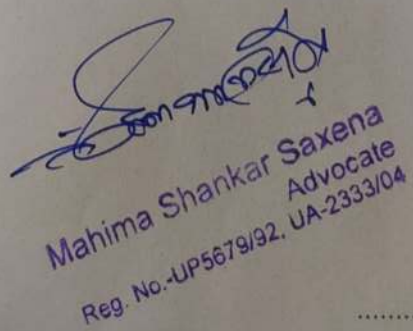 Mahima Shankar Saxena
Advocate
Reg. No.-UP5679/92, UA-2333/04